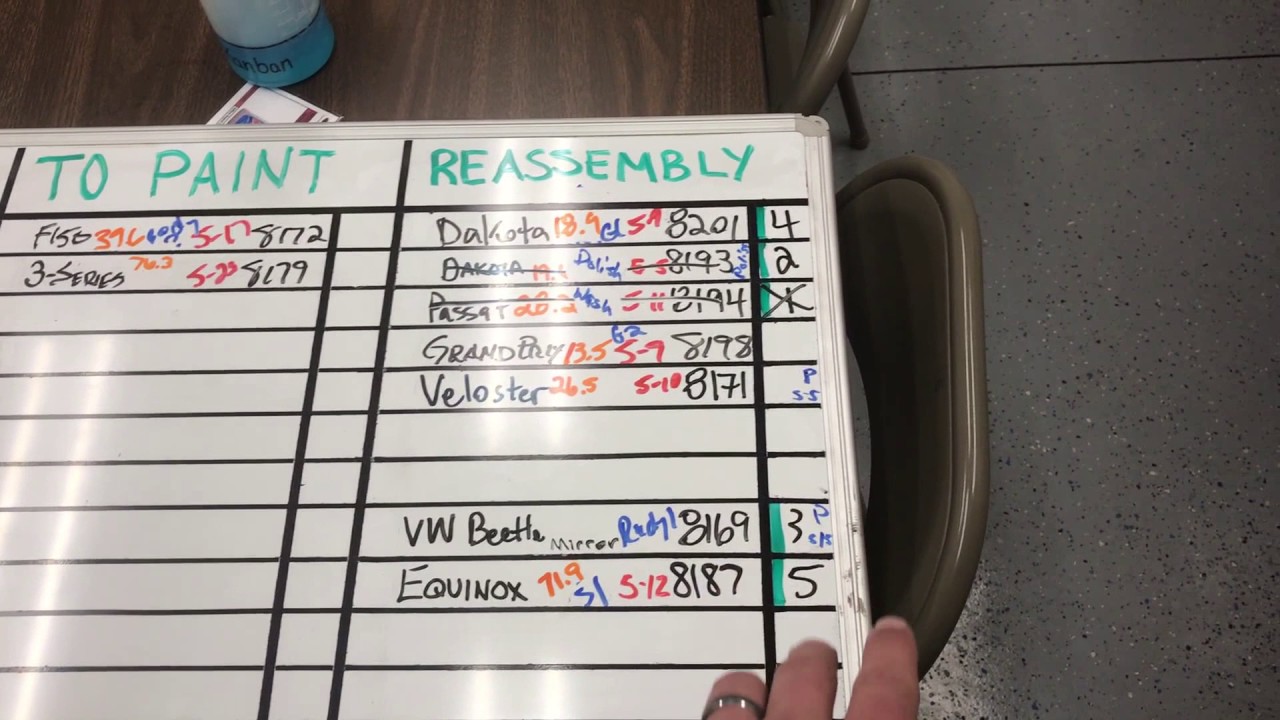 anban
TO PAINT
REASSEMBLY
F150 39.6 5-17 8172
3-SERIES 76.3 5-23 8179
Dakota 18.9 5-9 8201 4
DAKOTA 19.1 Polish 5-5 8193 2
Passat 28.2 Wash 5-11 8194
GRAND PRIX 13.5 5-9 8198
Veloster 26.5 5-10 8171 P 5-5
VW Beetle Mirror 8169 3 P 5/5
EQUINOX 71.9 S1 5-12 8187 5